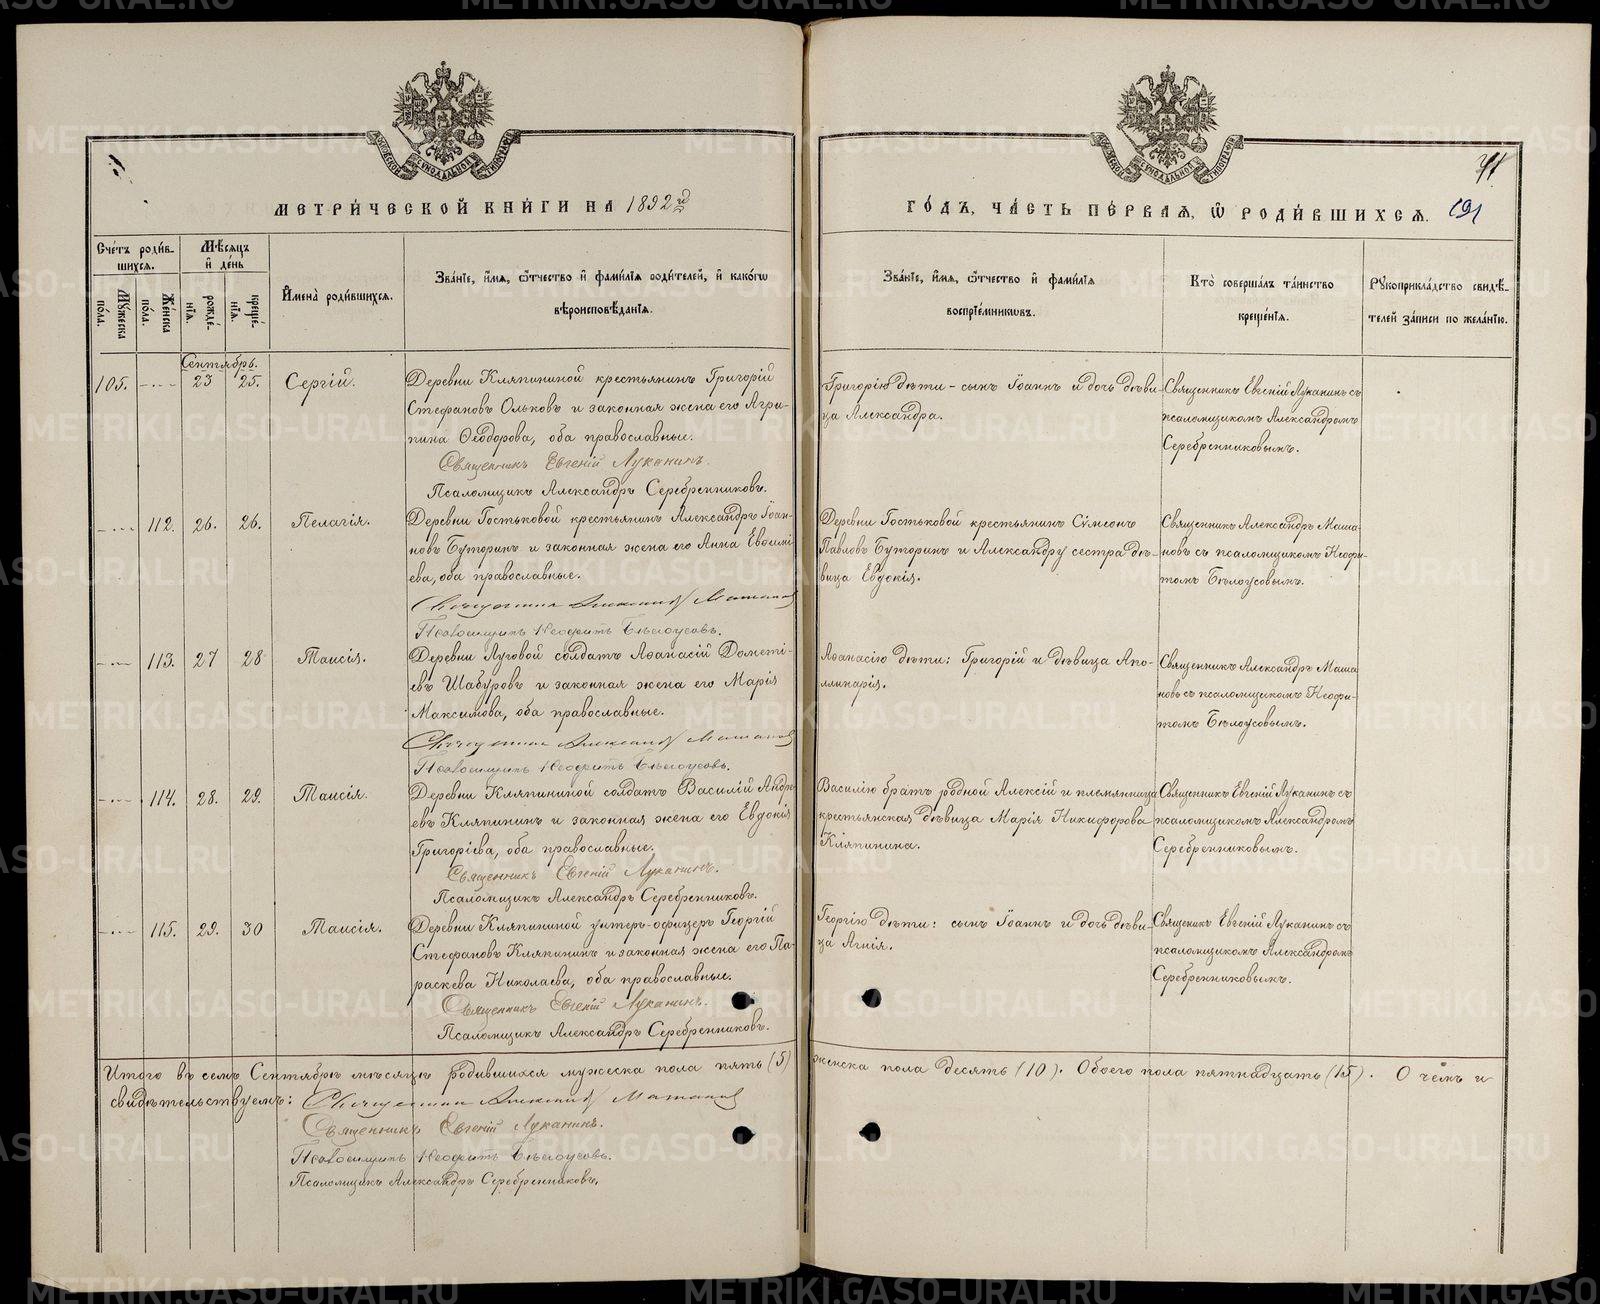 МЕТРИ́ЧЕСКОЙ КНИ́ГИ НА 1892й
ГО́ДЪ, ЧА́СТЬ ПЕ́РВАЯ, Ѡ РОДИ́ВШИХСЯ.
191
Сче́тъ роди́в-
шихся.
Мѣ́сяцъ
и де́нь
Му́жеска по́ла.
Же́нска по́ла.
рожде́-
нїя.
креще́-
нїя.
И҆мена̀ роди́вшихся.
Зва́нїе, и҆́мя, ѻ҆́тчество и҆ фами́лїя роди́телей, и҆ како́гѡ
вѣроисповѣ́данїя.
Зва́нїе, и҆́мя, ѻ҆́тчество и҆ фами́лїя
воспрїе́мникѡвъ.
Кто̀ соверша́лъ та́инство
креще́нїя.
Рꙋкоприкла́дство свидѣ́-
телей за́писи по жела́нїю.
Сентябрь.
105. 23 25. Сергій.
Деревни Кляпининой крестьянинъ Григорій
Стефановъ Ольковъ и законная жена его Агри-
пина Ѳеодорова, оба православные.
Священникъ Евгеній Луканинъ.
Псаломщикъ Александръ Серебренниковъ.
Григорію дѣти - сынъ Іоаннъ и дочь дѣви-
ца Александра.
Священникъ Евгеній Луканинъ съ
псаломщикомъ Александромъ
Серебренниковымъ.
112. 26. 26. Пелагія.
Деревни Гостьковой крестьянинъ Александръ Іоан-
новъ Буторинъ и законная жена его Анна Евѳимі-
ева, оба православные.
Священникъ Александръ Машановъ
Псаломщикъ Неофитъ Бѣлоусовъ.
Деревни Гостьковой крестьянинъ Сѵмеонъ
Павловъ Буторинъ и Александру сестра дѣ-
вица Евдокія.
Священникъ Александръ Маша-
новъ съ псаломщикомъ Неофи-
томъ Бѣлоусовымъ.
113. 27 28 Таисія.
Деревни Луговой солдатъ Аѳанасій Дометі-
евъ Шабуровъ и законная жена его Марія
Максимова, оба православные.
Священникъ Александръ Машановъ
Псаломщикъ Неофитъ Бѣлоусовъ.
Аѳанасію дѣти: Григорій и дѣвица Апо-
ллинарія.
Священникъ Александръ Маша
новъ съ псаломщикомъ Неофи-
томъ Бѣлоусовымъ.
114. 28. 29. Таисія.
Деревни Кляпининой солдатъ Василій Андре-
евъ Кляпининъ и законная жена его Евдокія
Григоріева, оба православные.
Священникъ Евгеній Луканинъ.
Псаломщикъ Александръ Серебренниковъ.
Василію братъ родной Алексій и племянница
крестьянская дѣвица Марія Никифорова
Кляпинина.
Священникъ Евгеній Луканинъ съ
псаломщикомъ Александромъ
Серебренниковымъ.
115. 29. 30 Таисія.
Деревни Кляпининой унтеръ-офицеръ Георгій
Стефановъ Кляпининъ и законная жена его Па-
раскева Николаева, оба православные.
Священникъ Евгеній Луканинъ.
Псаломщикъ Александръ Серебренниковъ.
Георгію дѣти: сынъ Іоаннъ и дочь дѣви-
ца Агнія.
Священикъ Евгеній Луканинъ съ
псаломщикомъ Александромъ
Серебренниковымъ.
Итого въ семъ Сентябрѣ мѣсяцѣ родившихся мужеска пола пять (5) женска пола десять (10). Обоего пола пятнадцать (15). О чемъ и
свидѣтельствуемъ: Священникъ Александръ Машановъ
Священникъ Евгеній Луканинъ.
Псаломщикъ Неофитъ Бѣлоусовъ.
Псаломщикъ Александръ Серебренниковъ.
METRIKI.GASO-URAL.RU